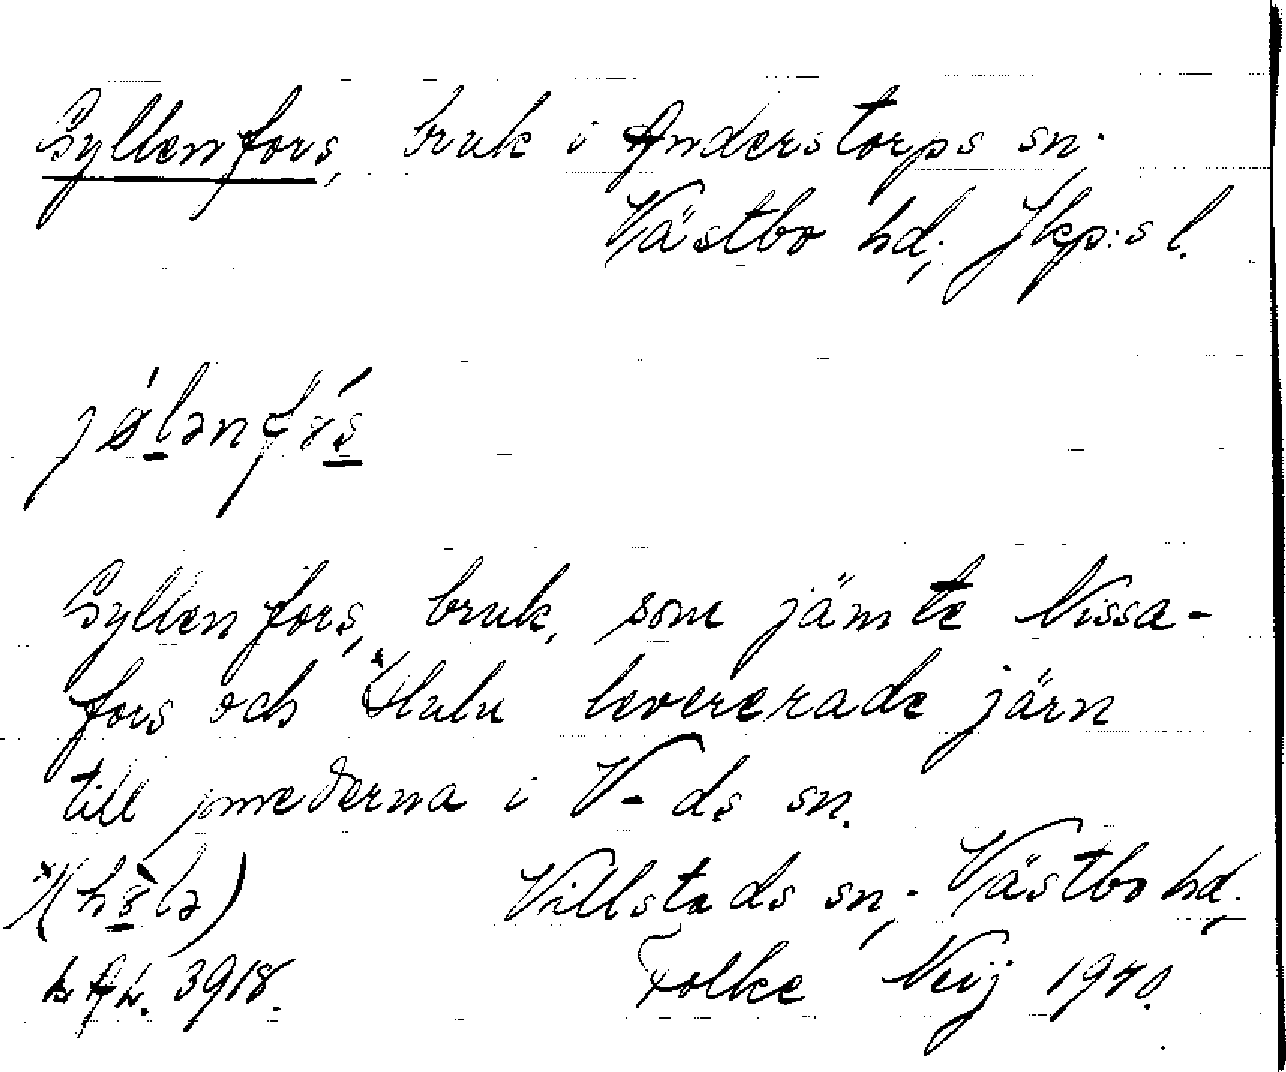 Gyllenfors, bruk i Anderstorps sn.
Västbo hd, Jkp:s l.
Gyllenfors, bruk, som jämte Nissa-
fors och x) Hulu levererade järn
till smederna i V-ds sn.
x) (hələ)
Villstads sn, Västbo hd,
3918.
Folke Neij 1940.